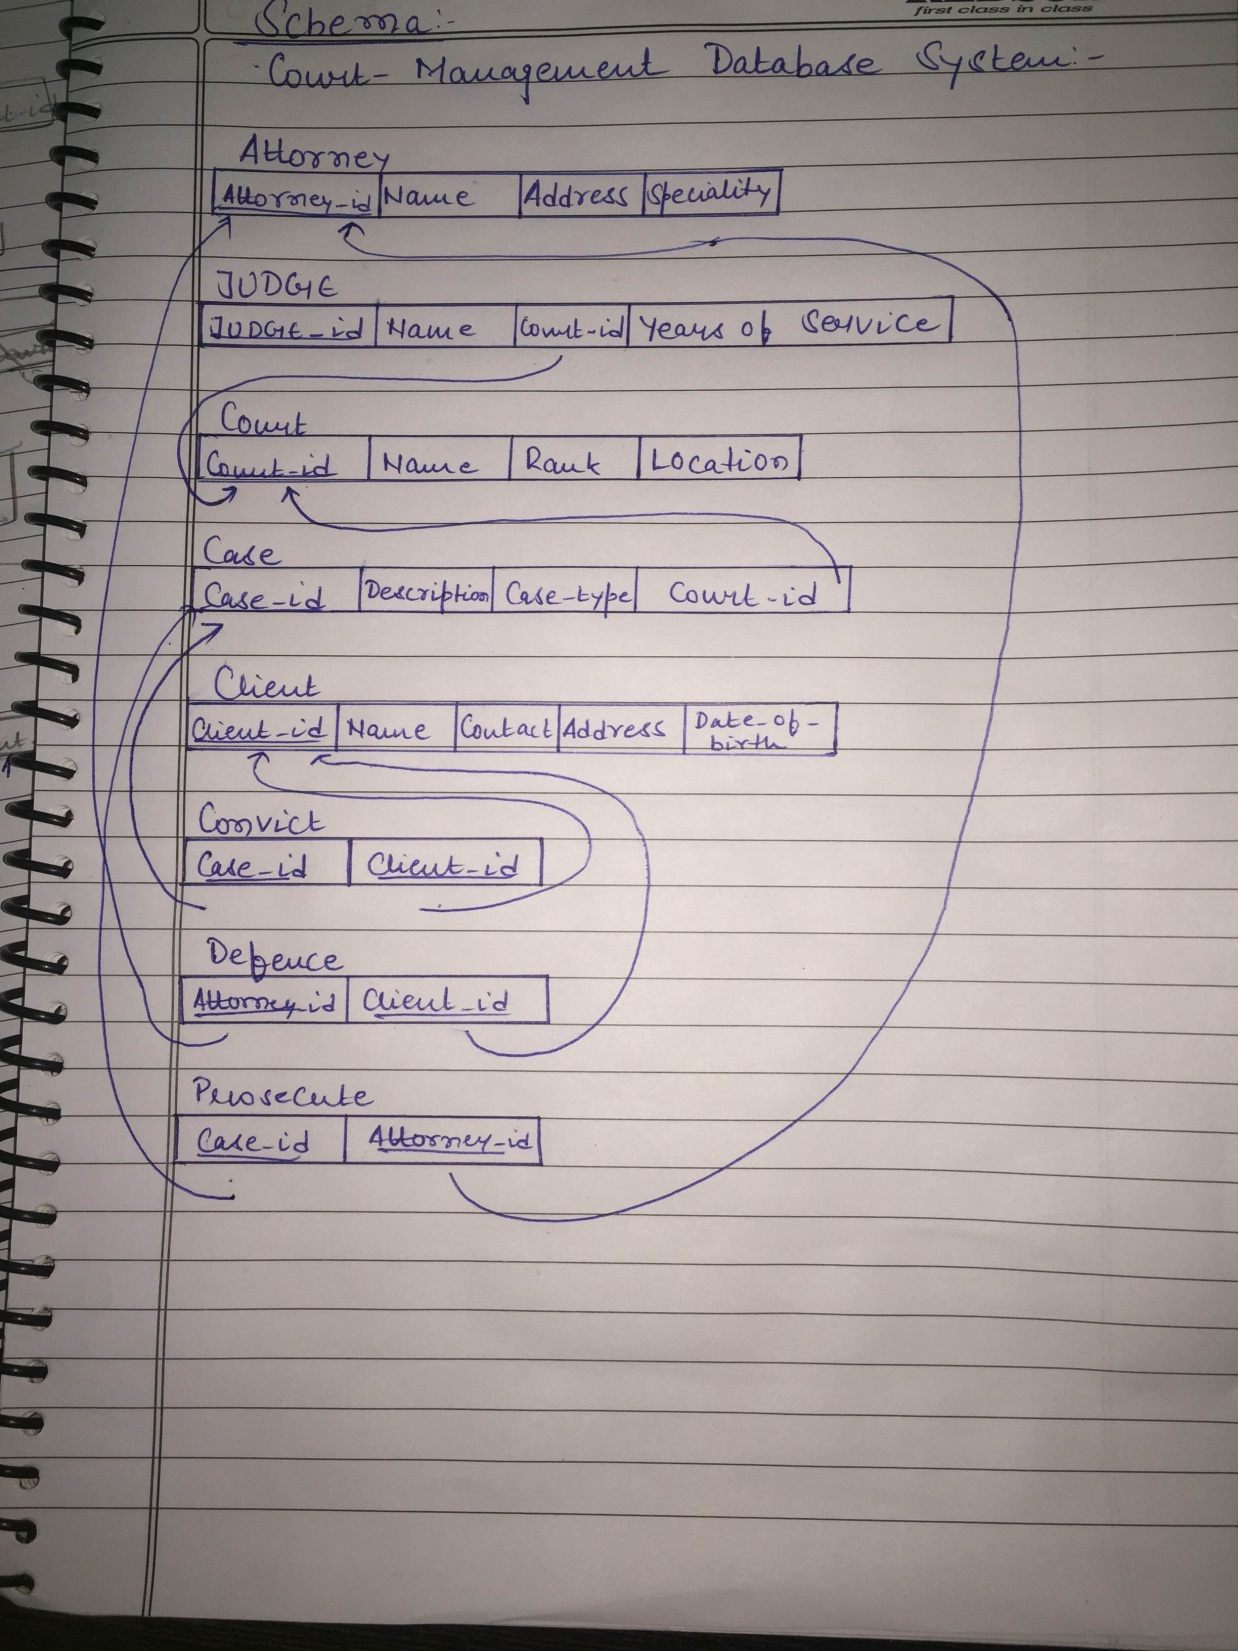 first class in class
Schema:-
Court- Management Database System:-
Attorney
Attorney-id Name Address Speciality
JUDGE
JUDGE-id Name Court-id Years of Service
Court
Court-id Name Rank Location
Case
Case-id Description Case-type Court-id
Client
Client-id Name Contact Address Date-of-
birth
Convict
Case-id Client-id
Defence
Attorney-id Client-id
Prosecute
Case-id Attorney-id